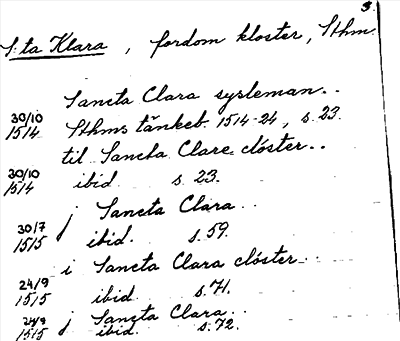 3.
S:ta Klara, fordom kloster, Sthm.
Sancta Clara sysleman..
30/10 1514 Sthms tänkeb. 1514-24, s. 23.
til Sancta Clare clóster..
30/10 1514 ibid. s. 23.
j Sancta Clara..
30/7 1515 ibid. s. 59.
i Sancta Clara clóster..
24/9 1515 ibid. s. 71.
j Sancta Clara..
24/9 1515 ibid. s. 72.